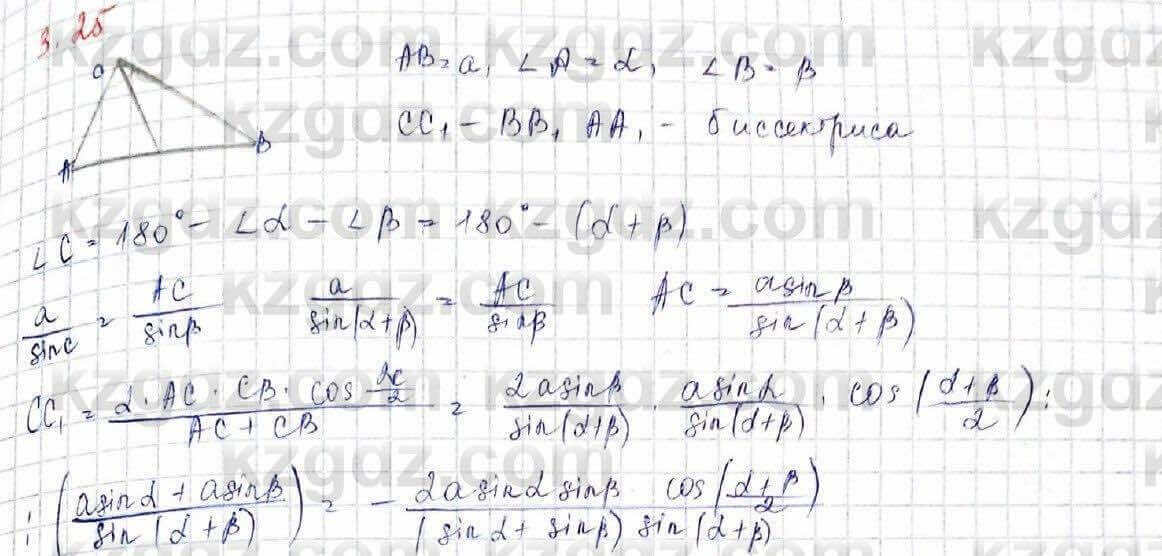 3.25
C
A
B
AB = a, ∠A = α, ∠B = β
CC₁ - BB₁ AA₁ - биссектриса
∠C = 180° - ∠α - ∠β = 180° - (α + β)
a/sinC = AC/sinβ   a/sin(α+β) = AC/sinβ   AC = asinβ/sin(α + β)
CC₁ = 2·AC·CB·cos ∠C/2 / AC + CB = 2asinβ/sin(α+β) · asinα/sin(α+β) · cos(α+β/2) :
: (asinα + asinβ/sin(α+β)) = - 2asinα sinβ cos(α+β/2)/(sinα + sinβ) sin(α+β)
kzgdz.com